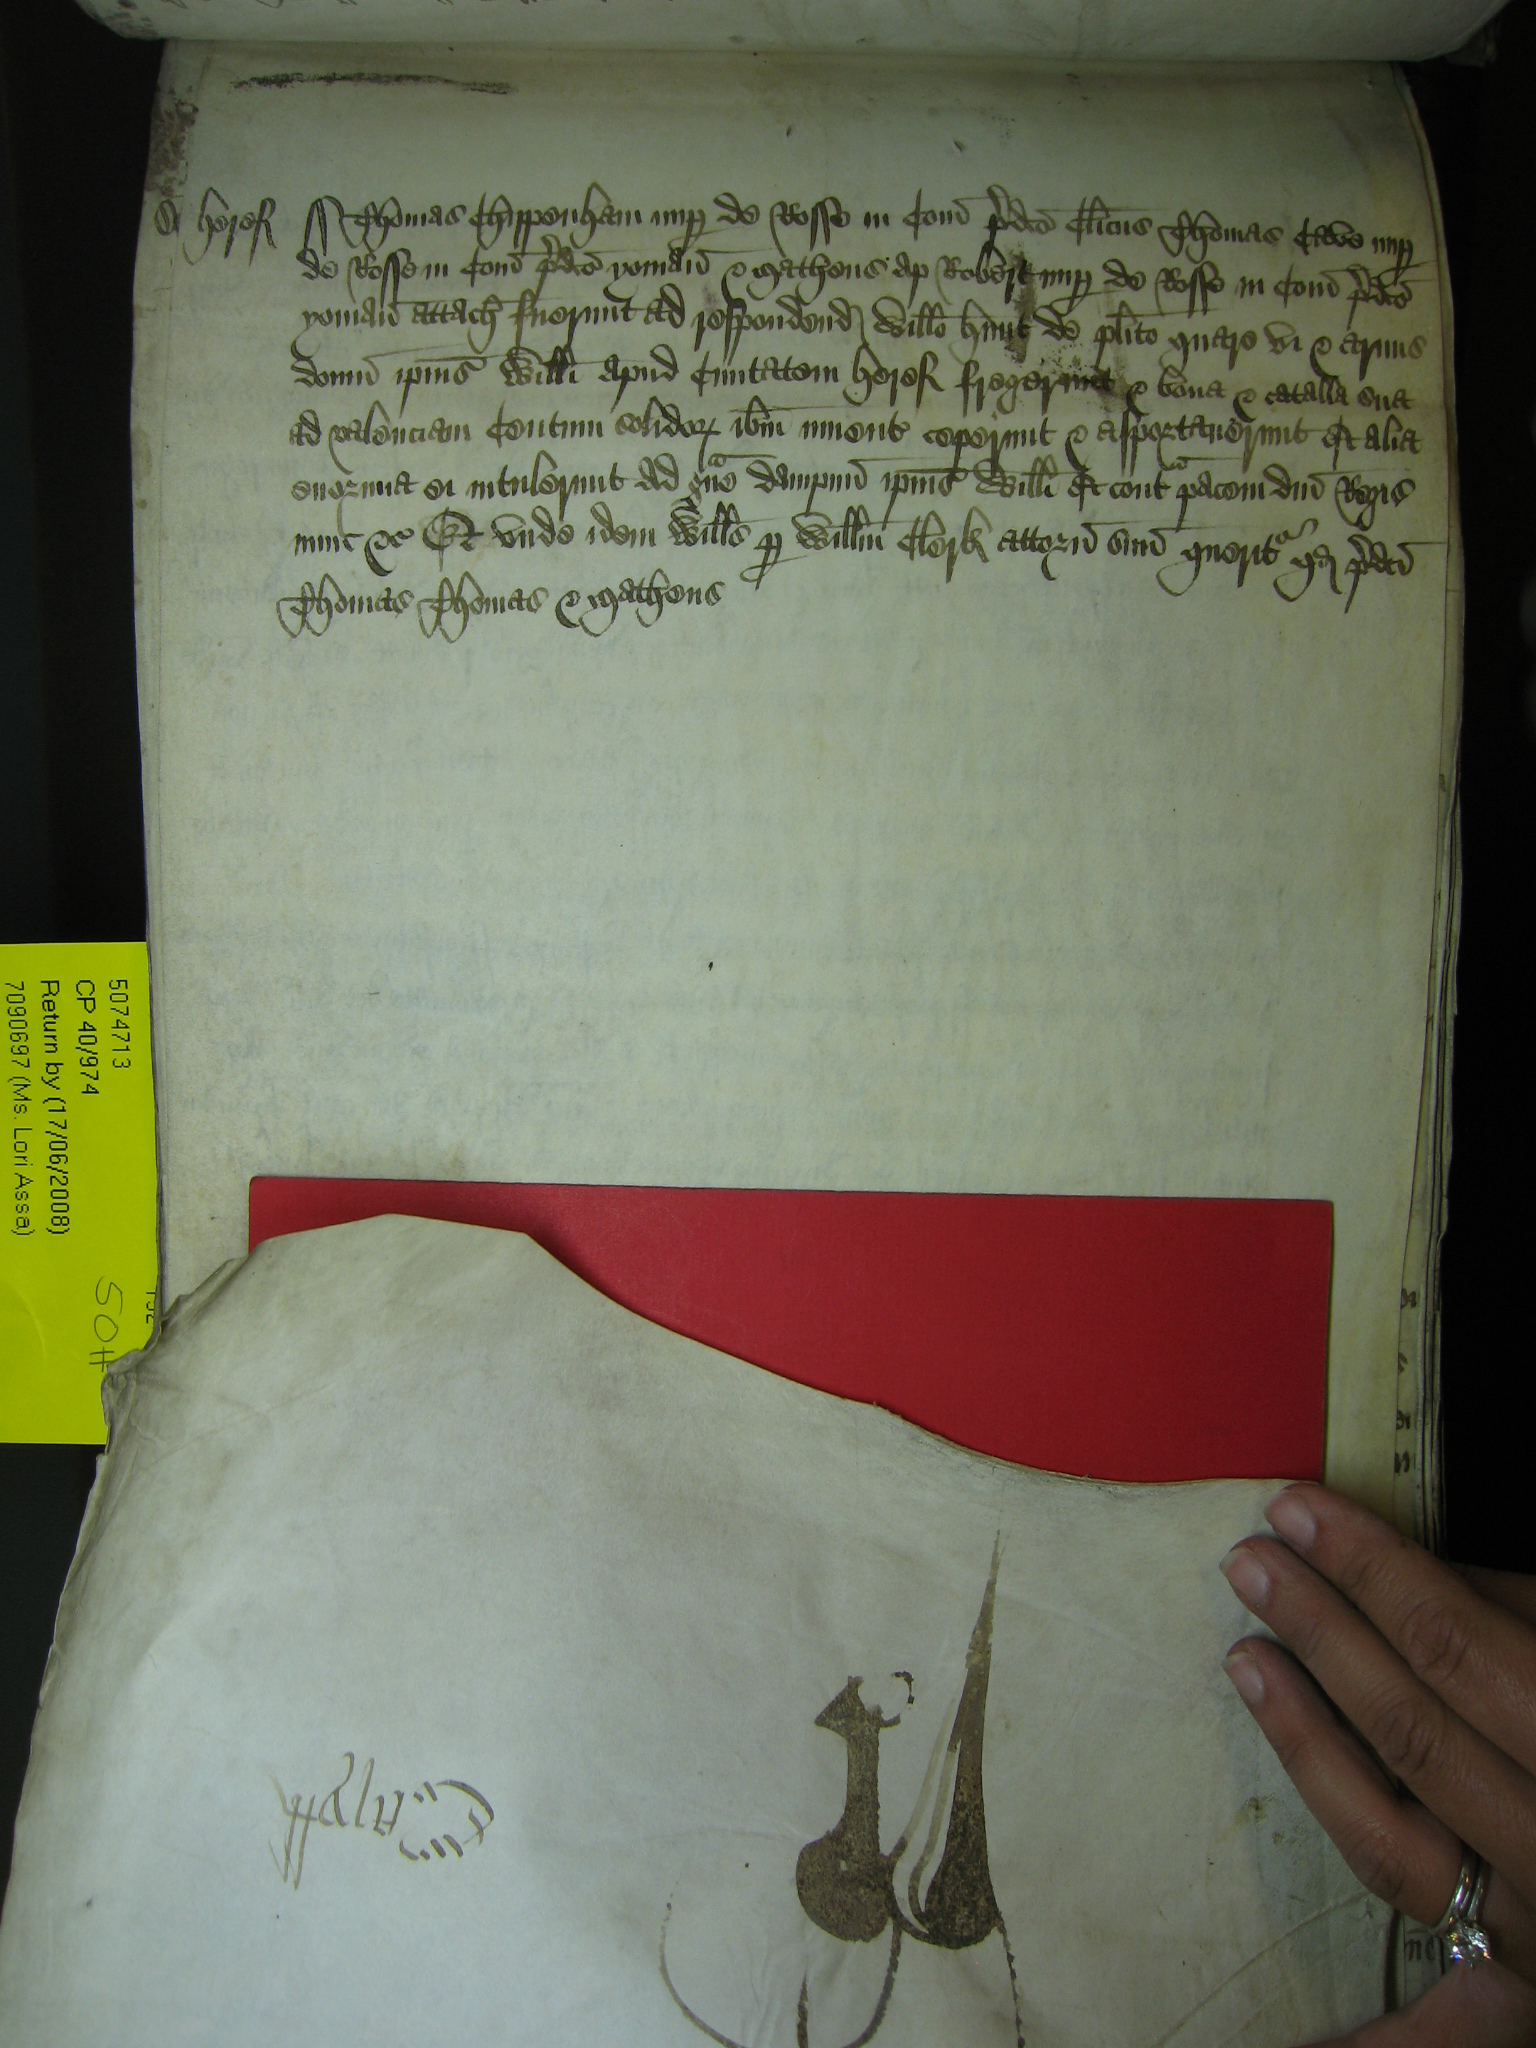 Heref
Thomas Chippenham nup de Rosse in Com p̄dco Clicus Thomas Cawe nup
de Rosse in Com p̄dco yoman & Matheus Ap Robert nup de Rosse in Com p̄dco
yoman attach fuerunt ad respondend Willo hunt de plito quare vi & armis
domu ipius Willi apud Ciuitatem Heref fregerunt & bona & catalla sua
ad valenciam Centum solidoꝝ ibm inuent ceperunt & asportauerunt Et alia
enormia ei intulerunt Ad gͣue dampnu ipius Willi Et contͣ pacem dni Regis
nunc &c Et vnde idem Wills ꝑ Willm Clerk attorn suu querit qd p̄dci
Thomas Thomas & Matheus
5074713
CP 40/974
Return by (17/06/2008)
7090697 (Ms. Lori Assa)